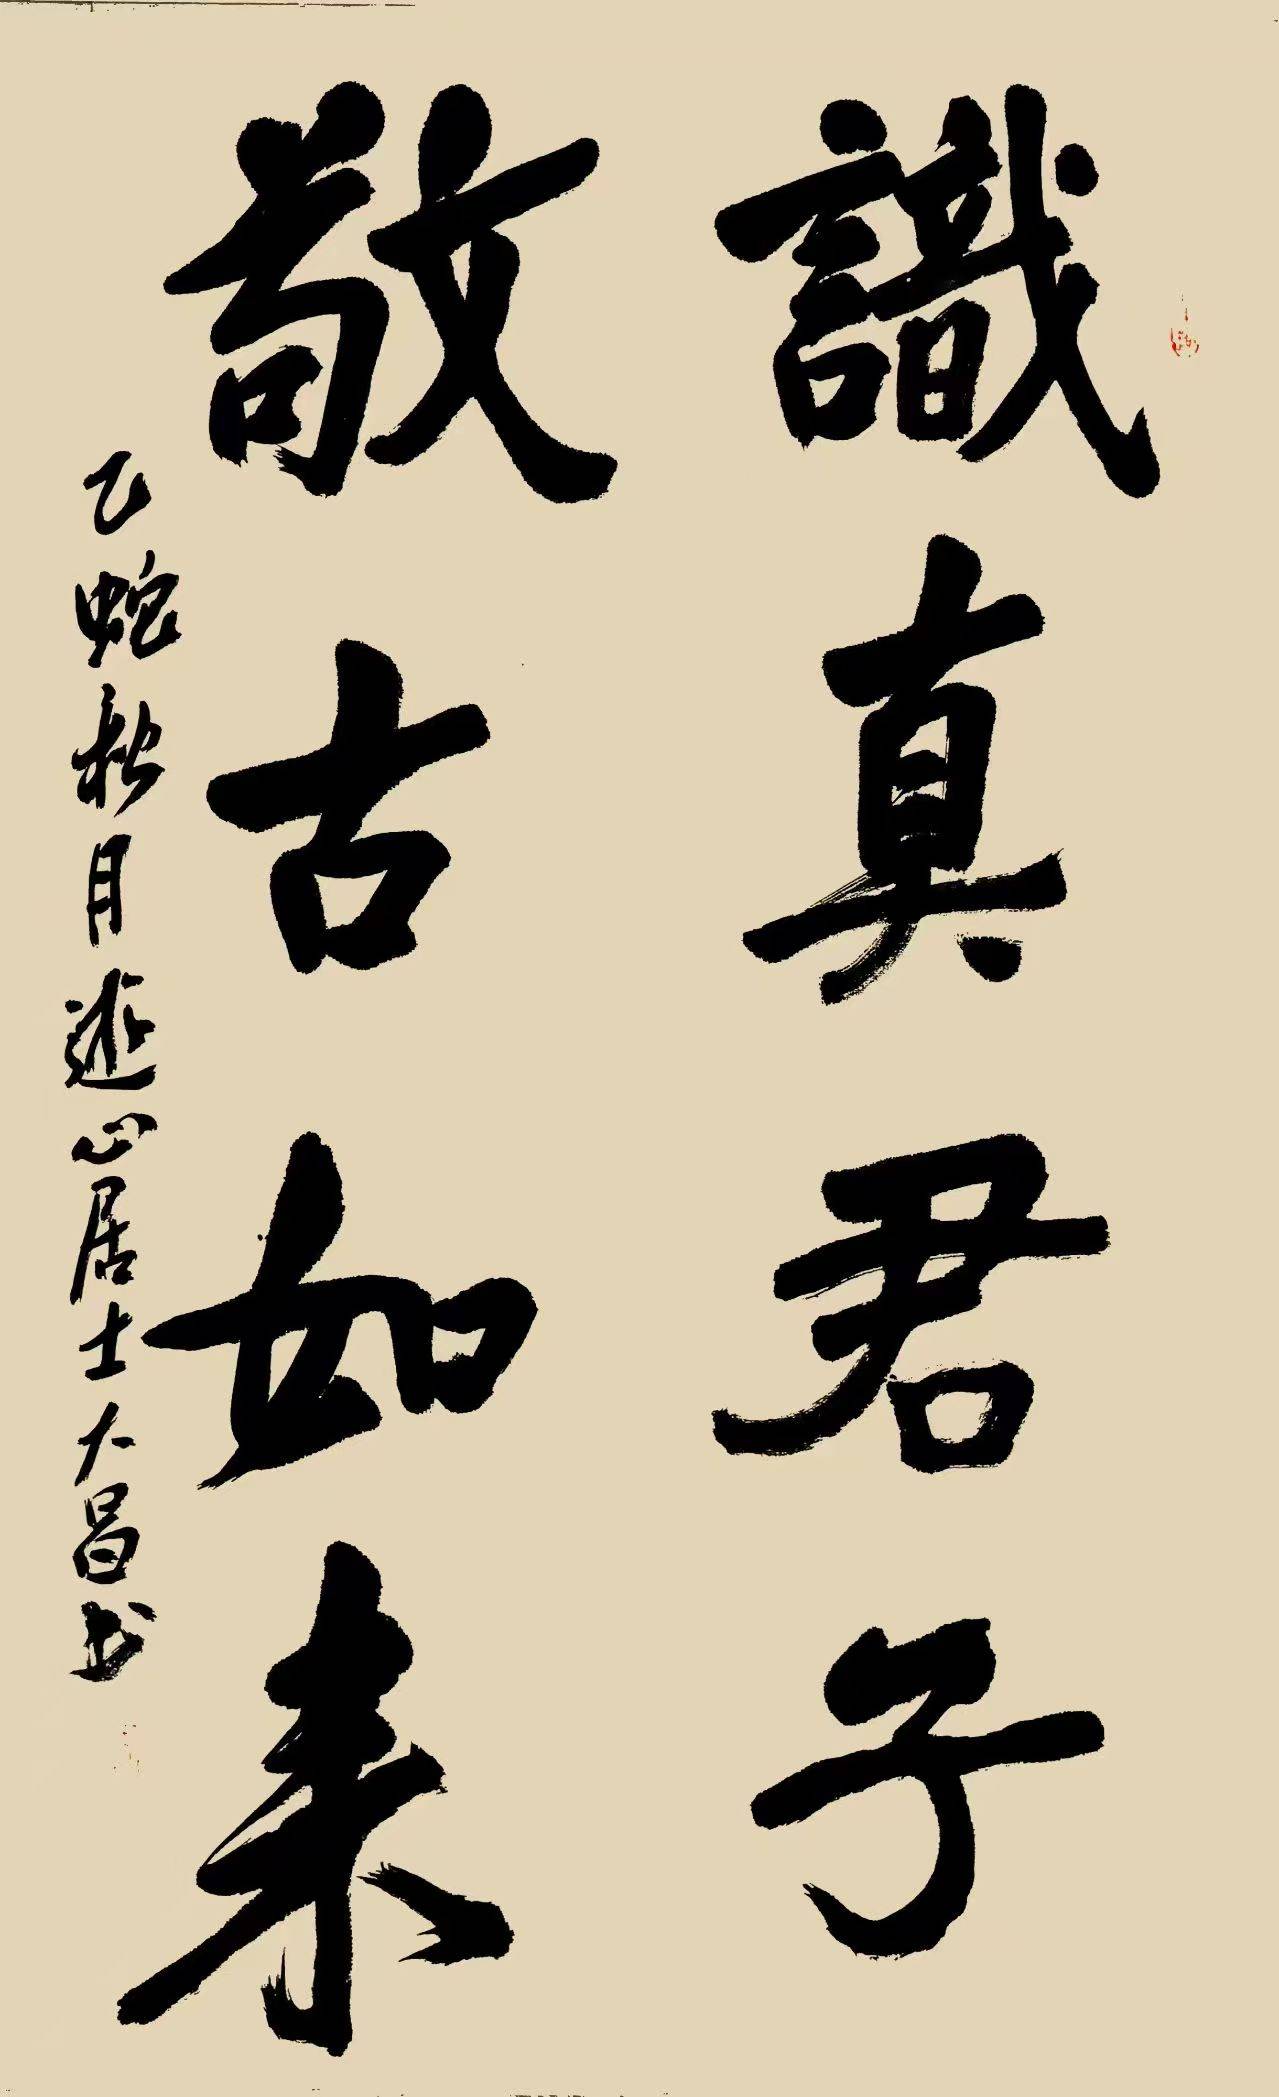 識真君子
敬古如来
乙蛇秋月遊心居士大昌书